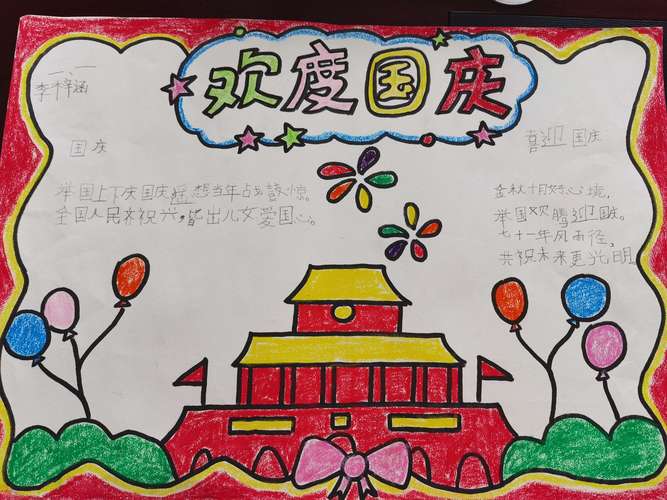 欢度国庆
一、一
李梓涵
国庆
举国上下庆国庆,想当年占鳌惊。
全国人民齐祝兴,皆出儿女爱国心。
喜迎国庆
金秋十月好心境,
举国欢腾迎国庆。
七十一年风雨径,
共祝未来更光明